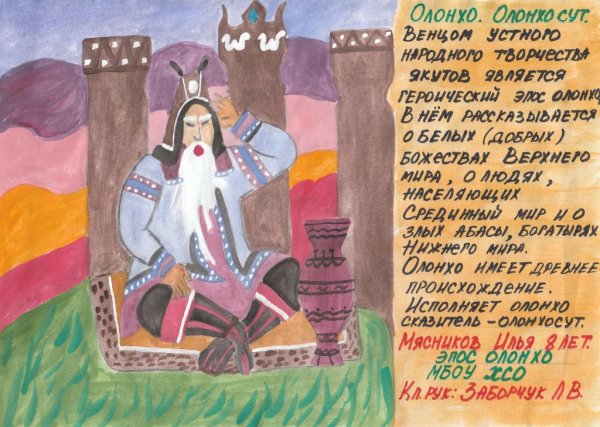 Олонхо. Олонхосут.
Венцом устного
народного творчества
якутов является
героический эпос олонхо.
В нём рассказывается
о белых (добрых)
божествах Верхнего
мира, о людях,
населяющих
Срединный мир и о
злых абасы, богатырях
Нижнего мира.
Олонхо имеет древнее
происхождение.
Исполняет олонхо
сказитель-олонхосут.
Мясников Илья 8 лет.
эпос олонхо
МБОУ ХСО
Кл.рук: Заборчук Л.В.